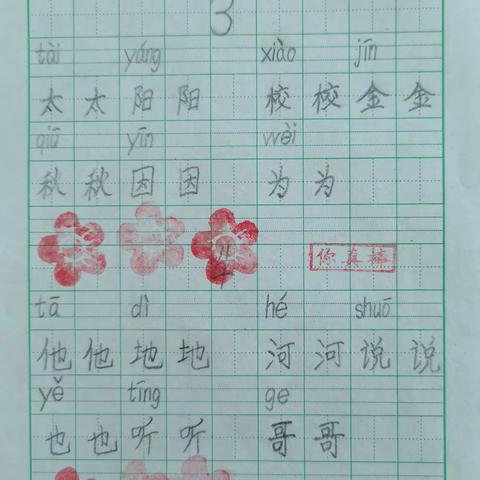 3
tài yáng xiào jīn
太 太 阳 阳 校 校 金 金
qiū yīn wèi
秋 秋 因 因 为 为
你真棒
tā dì hé shuō
他 他 地 地 河 河 说 说
yě tīng ge
也 也 听 听 哥 哥